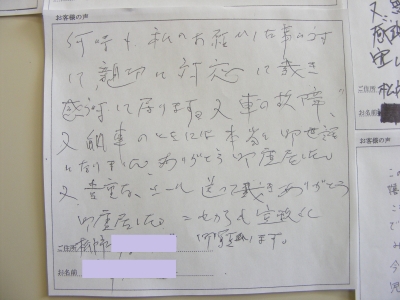 お客様の声
何時も私のお願いした事に対
して親切に対応して戴き
感謝して居ります。又車の故障、
又納車のときには本当に御世話
になりました。ありがとう御座居ました。
又、メール送って戴きありがとう
御座居ました。これからも宜敷く
ご住所 御願いします。
お名前
お客様の声
ご住所
お名前
お客様の声